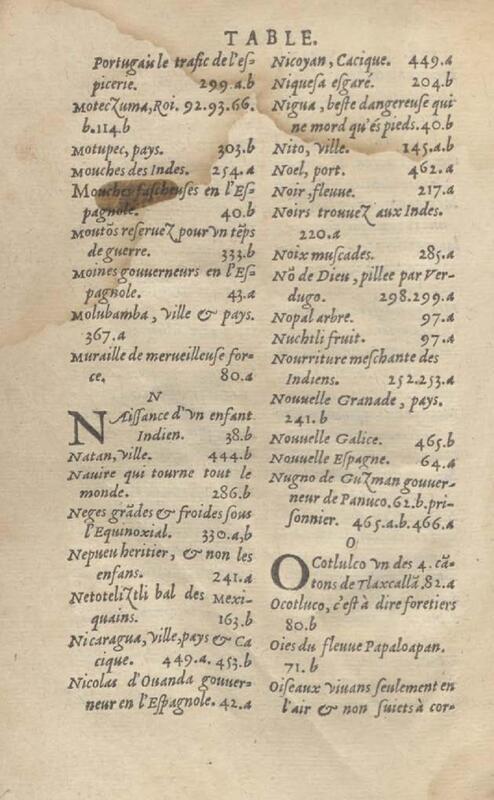 TABLE.
Portugal le trafic de l'eſ-
picerie. 299.a.b
Moteczuma, Roi. 92.93.66.
b.114.b
Motupec, pays. 303.b
Mouches des Indes. 254.a
Mouches faſcheuſes en l'Eſ-
pagnole. 40.b
Moutõs reſervez pour vn tẽps
de guerre. 333.b
Moines gouverneurs en l'Eſ-
pagnole. 43.a
Molubamba, ville & pays.
367.a
Muraille de merveilleuſe for-
ce. 80.a
N
NAiſſance d'vn enfant
Indien. 38.b
Natan, ville. 444.b
Navire qui tourne tout le
monde. 286.b
Neges grãdes & froides ſous
l'Equinoxial. 330.a,b
Nepueu heritier, & non les
enfans. 241.a
Netoteliztli bal des Mexi-
quains. 163.b
Nicaragua, ville, pays & Ca
cique. 449.a. 453.b
Nicolas d'Ouanda gouuer-
neur en l'Eſpagnole. 42.a
Nicoyan, Cacique. 449.a
Niqueſa eſgaré. 204.b
Nigua, beſte dangereuſe qui
ne mord qu'és pieds. 40.b
Nito, ville. 145.a.b
Noel, port. 462.a
Noir, fleuve. 217.a
Noirs trouvez aux Indes.
220.a
Noix muſcades. 285.a
Nõ de Dieu, pillee par Ver-
dugo. 298.299.a
Nopal arbre. 97.a
Nuchtli fruit. 97.a
Nourriture meſchante des
Indiens. 252.253.a
Nouvelle Granade, pays.
241.b
Nouvelle Galice. 465.b
Nouvelle Eſpagne. 64.a
Nugno de Guzman gouver-
neur de Panuco. 62.b. pri-
ſonnier. 465.a.b.466.a
O
OCotlulco vn des 4. cã-
tons de Tlaxcallã, 82.a
Ocotluco, c'eſt à dire foretiers
80.b
Oies du fleuve Papaloapan.
71.b
Oiſeaux vivans ſeulement en
l'air & non ſuiets à cor-